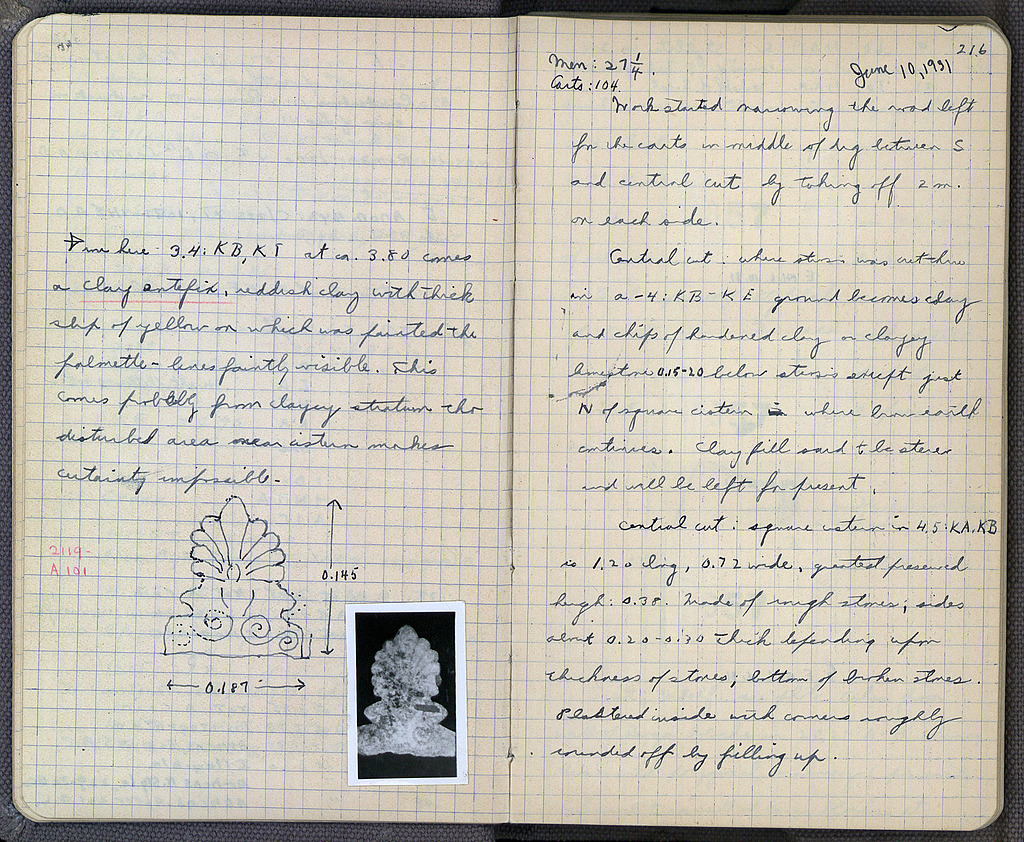 From here 3.4: KB, KΓ at ca. 3.80 comes
a clay antefix, reddish clay with thick
slip of yellow on which was painted the
palmette - lines faintly visible. This
comes probbly from clayey stratum tho
disturbed area near cistern makes
certainty impossible.
2119-
A 101
0.145
0.187
216
Men: 27 1/4.
June 10, 1931
Carts: 104.
Work started narrowing the road left
for the carts in middle of dig between S
and central cut by taking off 2 m.
on each side.
Central cut: where was cut thru
in a-4: KB-KE ground becomes clay
and chips of hardened clay or clayey
limestone 0.15-20 below except just
N of square cistern where brown earth
continues. Clay fill said to be
and will be left for present.
Central cut: square cistern in 4.5: KA, KB
is 1.20 long, 0.72 wide, greatest preserved
heigh: 0.38. Made of rough stones; sides
about 0.20-0.30 thick depending upon
thickness of stones; bottom of broken stones.
Plastered inside with corners roughly
rounded off by filling up.